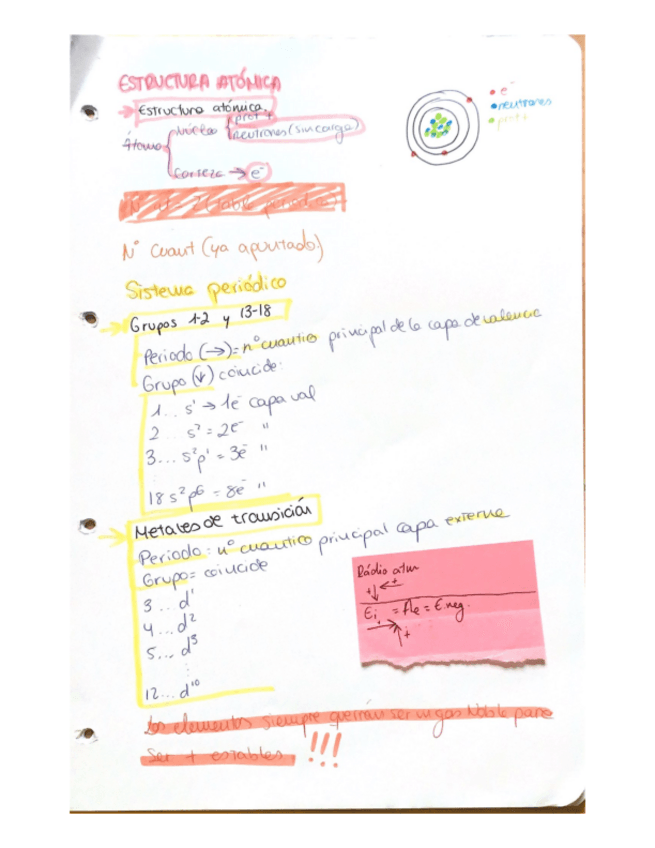 ESTRUCTURA ATÓNICA
→ Estructura atómica
Átomo
Núcleo
prot +
neutrones (sin carga)
Corteza → e⁻
e⁻
neutrones
prot +
(tabla periódica)
Nº cuant (ya apuntado)
Sistema periódico
→ Grupos 1-2 y 13-18
Periodo (→) = nº cuantico principal de la capa de valencia
Grupo (↓) coincide:
1... s¹ → 1e⁻ capa val
2... s² = 2e⁻ "
3... s²p¹ = 3e⁻ "
18 s²p⁶ = 8e⁻ "
→ Metales de transición
Periodo: nº cuantico principal capa externa
Grupo = coincide
3... d¹
4... d²
5... d³
12... d¹⁰
Rádio atm
+↓ ←+
Ei = Ae = E.neg.
→ ↑+
Los elementos siempre querrán ser un gas Noble para
ser + estables !!!